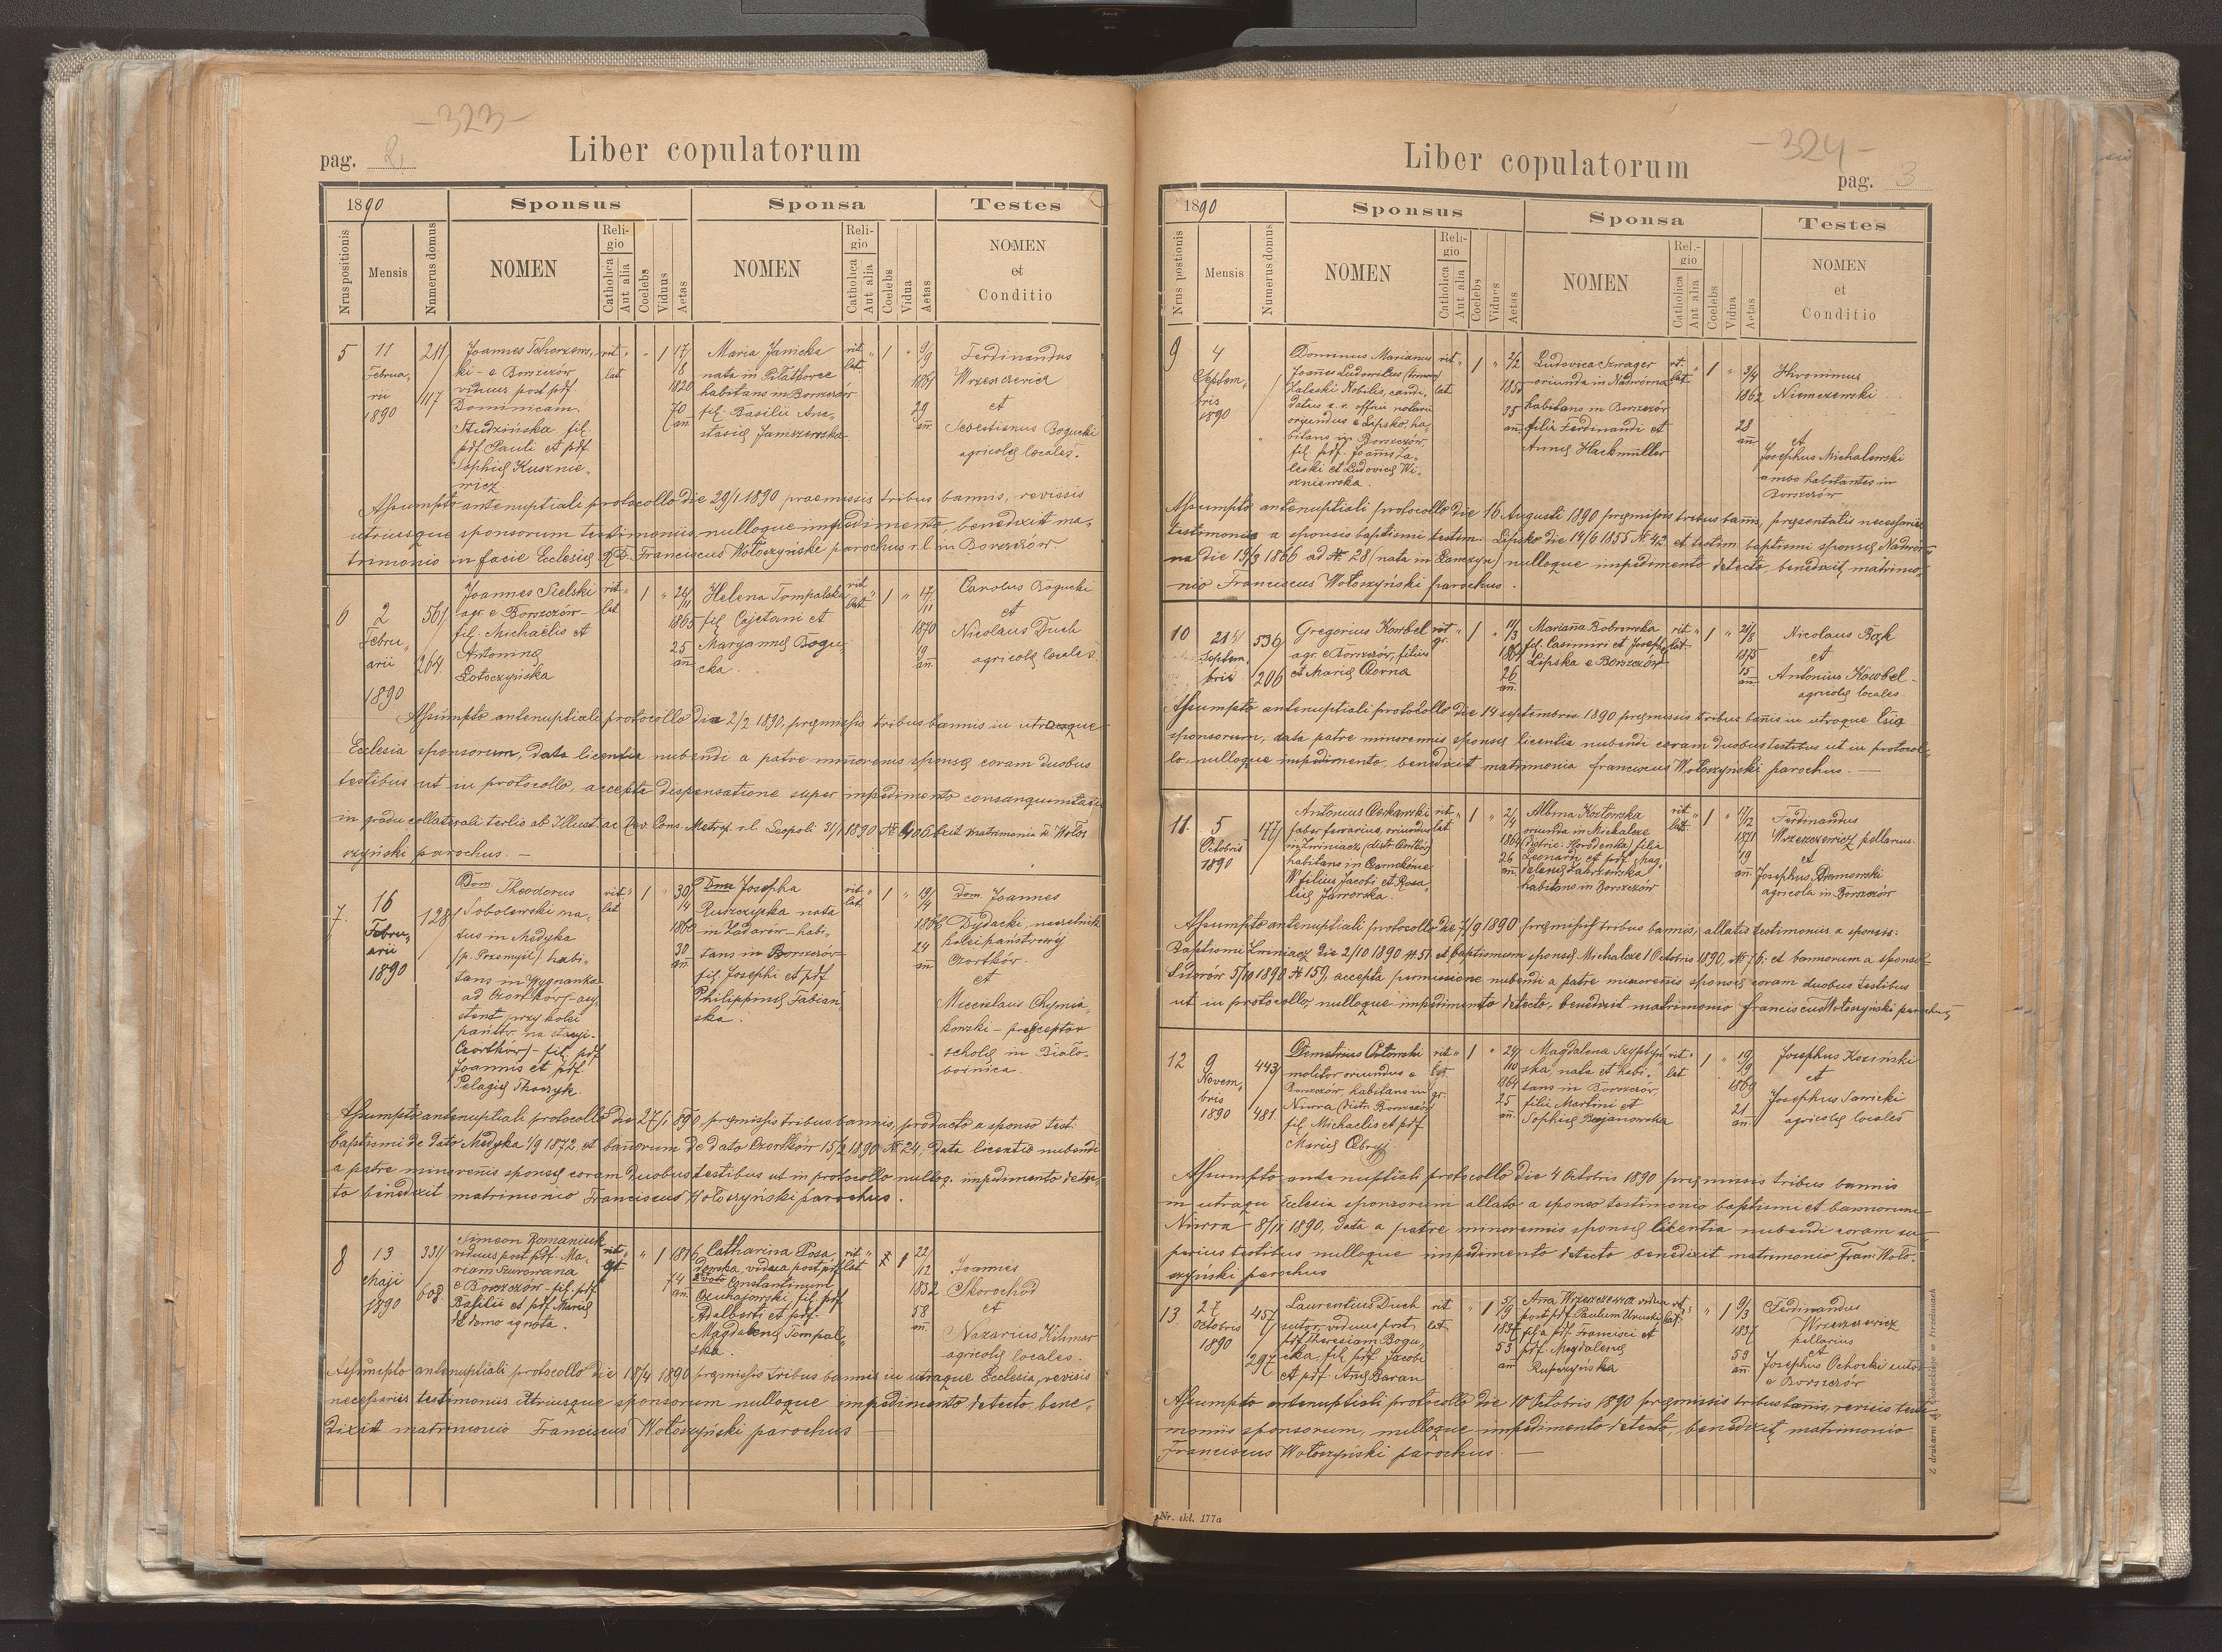 -323-
pag. 2.
Liber copulatorum
1890
Sponsus
Sponsa
Testes
Nrus positionis
Mensis
Numerus domus
NOMEN
Religio
Catholica
Aut alia
Coelebs
Viduus
Aetas
NOMEN
Religio
Catholica
Aut alia
Coelebs
Vidua
Aetas
NOMEN
et
Conditio
5
11
Februa-
rii
1890
211/
117
Joannes
ki - e Borszczów
viduus post pdf
Dominicam
Studzińska fil.
pdf Pauli et pdf
Sophię Kusznie-
wicz.
rit
lat
" 1
17/
6
1820
70
an.
Maria Janicka
nata in Piłatkowce
habitans in Borszczów
fil. Basilii Ana-
stasię Janiszewska
rit
lat
" 1 "
9/
9
1861
29
an.
Ferdinandus
Wrzeszczewicz
et
Sebestianus Bogucki
agricolę locales.
Assumpto antenuptiali protocollo die 29/1 1890 praemissis tribus bannis, revisis
utriusque sponsorum testimoniis nulloque impedimento, benedixit ma-
trimonio in facie Ecclesię Franciscus Wołoszyński parochus r.l. in Borszczów
6
2
Febru-
arii
1890
561/
264
Joannes Sielski
agr. e Borszczów -
fil. Michaëlis et
Antoninę
Łotoczyńska
rit
lat
" 1 "
24/
11
1865
25
an
Helena Tompalska
fil. Cajetani et
Maryannę Bogu-
cka.
rit
lat
" 1 "
17/
11
1870
19
an
Carolus Bogucki
et
Nicolaus Duch
agricolę locales.
Assumpto antenuptiali protocollo die 2/2 1890, pręmissis tribus bannis in utraque
Ecclesia sponsorum, data licentia nubendi a patre minorenis sponsę coram duobus
testibus ut in protocollo, accepta dispensatione super impedimento consanquinitatis
in gradu collaterali tertio ab Illust. ac Rev. Cons. Metrop. r.l. Leopoli 31/1 1890 № 406 bxit matrimonio Fr. Woło-
szyński parochus -
7.
16
Febru-
arii
1890
128/
Dom. Theodorus
Sobolewski na-
tus in Medyka
(p. Przemyśl) habi-
tans in Wygnanka
ad Czortków - asy-
stent przy kolei
państw. na stacyi
Czortków) - fil. pdf
Joannis et pdf.
Pelagię Tkaczyk.
rit
lat
" 1 "
30/
4
1860
30
an.
Dna Josepha
Ruszczycka nata
in Zadarow - habi-
tans in Borszczów
fil. Josephi et pdf
Philippinę Fabiań-
ska.
rit
lat
" 1 "
19/
4
1866
24
an
Dom. Joannes
Dydacki, naczelnik
kolei państwowej
Czortków.
et
Mieceslaus
- pręceptor
scholę in Biało-
boźnica.
Assumpto antenuptiali protocollo die 27/1 890 pręmissis tribus bannis, producto a sponso test:
baptismi de dato Medyka 1/9 1872, et bannorum de dato Czortków 15/2 1890 № 24, data licentia nubendi
a patre minorenis sponsę coram duobus testibus ut in protocollo nulloq. impedimento detec-
to benedixit matrimonio Franciscus Wołoszyński parochus.
8
13
Maji
1890
331/
608
Simeon Romaniuk
viduus post pdf. Ma-
riam Szurowana
e Borszczów - fil. pdf
Basilii et pdf. Marię
de domo ignota.
rit
gr.
" " 1
1816
74
an.
Catharina Posa-
dowska, vidua post pdf
2 voto Constantinum
Czuhajowski fil. pdf
Adalberti et pdf.
Magdalenę Tompal-
ska.
rit
lat
" 1
22/
12
1832
58
an.
Joannes
Skorochod
et
Nazarius Kihmar
agricolę locales.
Assumpto antenuptiali protocollo die 18/4 1890 pręmissis tribus bannis in utraque Ecclesia, revisis
necessariis testimoniis utriusque sponsorum nulloque impedimento detecto, bene-
dixit matrimonio Franciscus Wołoszyński parochus
-324-
Liber copulatorum
pag. 3
1890
Sponsus
Sponsa
Testes
Nrus postionis
Mensis
Numerus domus
NOMEN
Religio
Catholica
Aut alia
Coelebs
Viduus
Aetas
NOMEN
Religio
Catholica
Aut alia
Coelebs
Vidua
Aetas
NOMEN
et
Conditio
9
4
Septem-
bris
1890
Dominus Marianus
Joannes Ludovicus (trium)
Zaleski Nobilis, candi-
datus c.r. offici notarii
oriundus e Lipsko, ha-
bitans in Borszczów,
fil. pdf. Joannis Za-
leski et Ludovicę Wi-
szniewska.
rit
lat
" 1 "
2/2
1855
35
an.
Ludovica Szrager
oriunda in Nadwórna
habitans in Borszczów
filia Ferdinandi et
Annę Hackmüller
rit.
lat
" 1 "
3/4
1862
28
an.
Hironimus
Niemczewski
et
Josephus Michalewski
ambo habitantes in
Borszczów
Assumpto antenuptiali protocollo die 16 Augusti 1890 pręmissis tribus bannis, pręsentatis necessariis
testimoniis a sponsis baptismi testim. Lipsko die 14/6 1855 № 42 et testim. baptismi sponsę Nadwór-
na die 19/3 1866 ad № 28 (nata in Łanczyn) nulloque impedimento detecto, benedixit matrimo-
nio Franciscus Wołoszyński parochus.
10
21
Septem-
bris
536/
206
Gregorius Kowbel
agr. e Borszczów, filius
et Marię Czorna
rit
gr.
" 1 "
11/
3
1864
26
an.
Marianna Bobrowska
fil. Casimiri et Josephę
Lipska e Borszczów
rit
lat
" 1 "
21/
8
1875
15
an.
Nicolaus Bąk
et
Antonius Kowbel -
agricolę locales
Assumpto antenuptiali protocollo die 14 septembris 1890 pręmissis tribus bannis in utroque Esia
sponsorum, data patre minorennis sponsę licentia nubendi coram duobus testibus ut in protocol-
lo, nulloque impedimento, benedixit matrimonia Franciscus Wołoszyński parochus. -
11.
5
Octobris
1890
177/
Antonius
faber ferrarius, oriundus
in Zwiniacz, (distr. Czortków)
habitans in Czarnokońce
W. filius Jacobi et Rosa-
lię Jaworska.
rit
lat
" 1 "
2/
4
1864
26
an.
Albina Kozłowska
oriunda in Michalcze
(distric. Horodenka) filia
Leonardi et pdf. Mag-
dalenę Zabrzewska
habitans in Borszczów
rit
lat.
" 1 "
17/
12
1871
19
an.
Ferdinandus
Wrzeszczewicz pellarius.
et
Josephus Adamowski
agricola in Borszczów
Assumpto antenuptiali protocollo die 7/9 1890 pręmissis tribus bannis, allatis testimoniis a sponsis:
Baptismi Zwiniacz die 2/10 1890 № 51 et baptismum sponsę Michalcze 1 Octobris 1890, № 76. et bannorum a sponso
5/10 1890 № 159, accepta permissione nubendi a patre minorennis sponsę coram duobus testibus
ut in protocollo, nulloque impedimento detecto, benedixit matrimonio Franciscus Wołoszyński parochus
12
9
Novem-
bris
1890
443/
481
Demetrius
molitor oriundus e
Borszczów, habitans in
Niwra (distr. Borszczów)
fil. Michaelis et pdf
Marię
rit
gr.
" 1 "
24/
10
1864
25
an.
Magdalena Szyptyń-
ska, nata et habi-
tans in Borszczów,
filii Martini et
Sophię Bojanowska
rit
lat
" 1 "
19/
9
1869
21
an.
Josephus Koziński
et
Josephus Sawicki
agricolę locales
Assumpto ante nuptiali protocollo die 4 Octobris 1890 pręmissis tribus bannis
in utraqu Ecclesia sponsorum allato a sponso testimonio baptismi et bannorum
Niwra 8/11 1890, data a patre minorennis sponsę licentia nubendi coram su-
perius testibus nulloque impedimento detecto benedixit matrimonio Fran: Woło-
szyński parochus
13.
27
Octobris
1890
457/
297
Laurentius Duch
sutor, viduus post
pdf Theresiam Bogu-
cka, fil. pdf Jacobi
et pdf. Annę Baran
rit
lat
" 1
5/
9
1837
53
an
Anna Wrzeszczewicz vidua
post pdf. Paulum
filia pdf. Francisci et
pdf. Magdalenę
Rupczyńska
rit
lat.
" 1
9/
3
1837
53
an.
Ferdinandus
Wrzeszczewicz
pellarius
et
Josephus Ochocki sutor
e Borszczów
Assumpto antenuptiali protocollo die 10 Octobris 1890 pręmissis tribus bannis, revisis testi-
moniis sponsorum, nulloque impedimento detecto, benedixit matrimonio
Franciscus Wołoszyński parochus. -
Nr. skł. 177a